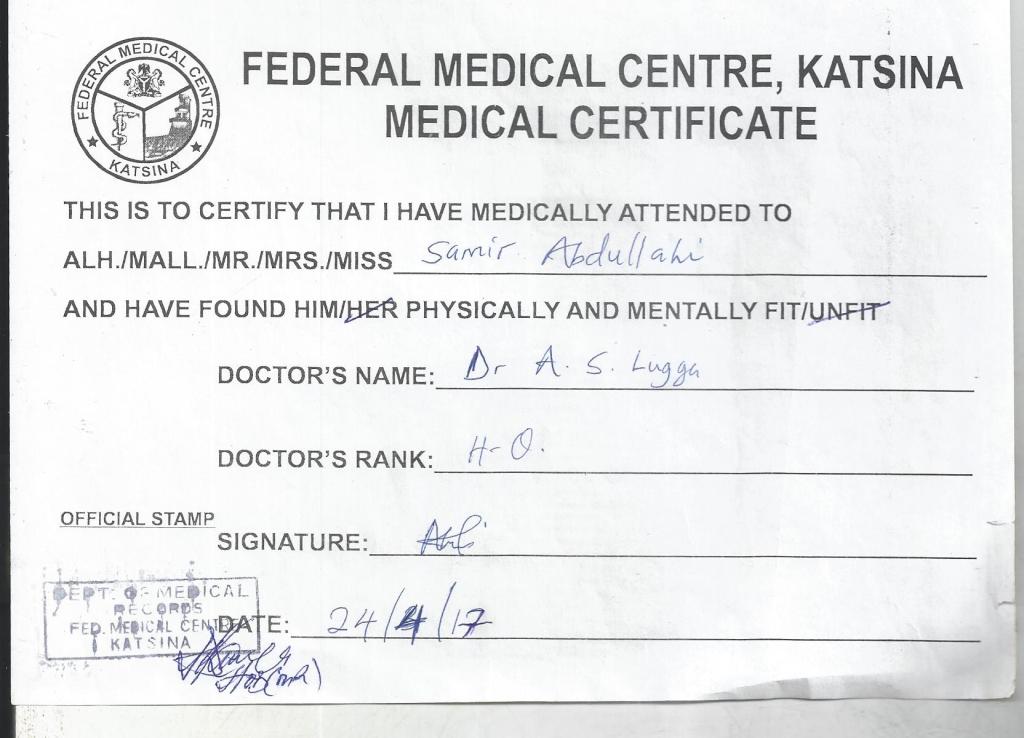 FEDERAL MEDICAL CENTRE
KATSINA
FEDERAL MEDICAL CENTRE, KATSINA
MEDICAL CERTIFICATE
THIS IS TO CERTIFY THAT I HAVE MEDICALLY ATTENDED TO
ALH./MALL./MR./MRS./MISS Samir Abdullahi
AND HAVE FOUND HIM/HER PHYSICALLY AND MENTALLY FIT/UNFIT
DOCTOR'S NAME: Dr A. S. Lugga
DOCTOR'S RANK: H-O.
OFFICIAL STAMP
SIGNATURE:
DEPT. OF MEDICAL
RECORDS
FED. MEDICAL CENTRE
KATSINA
DATE: 24/4/17